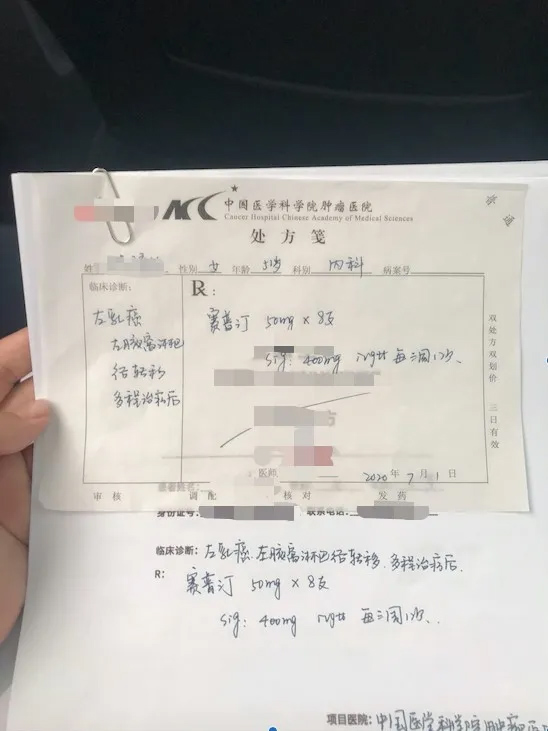 普通
中国医学科学院肿瘤医院
Cancer Hospital Chinese Academy of Medical Sciences
处方笺
姓 性别 女 年龄 51岁 科别 内科 病案号
临床诊断:
左乳癌
左腋窝淋巴
结转移
多程治疗后
R:
赛普汀 50mg × 8支
sig: 400mg ivgtt 每三周1次、
双处方双划价 三日有效
医师
2020年7月1日
审核 调配 核对 发药
患者姓名:
身份证号: 联系电话:
临床诊断: 左乳癌 左腋窝淋巴结转移、多程治疗后、
R: 赛普汀 50mg × 8支
sig: 400mg ivgtt 每三周1次、
项目医院: 中国医学科学院肿瘤医院